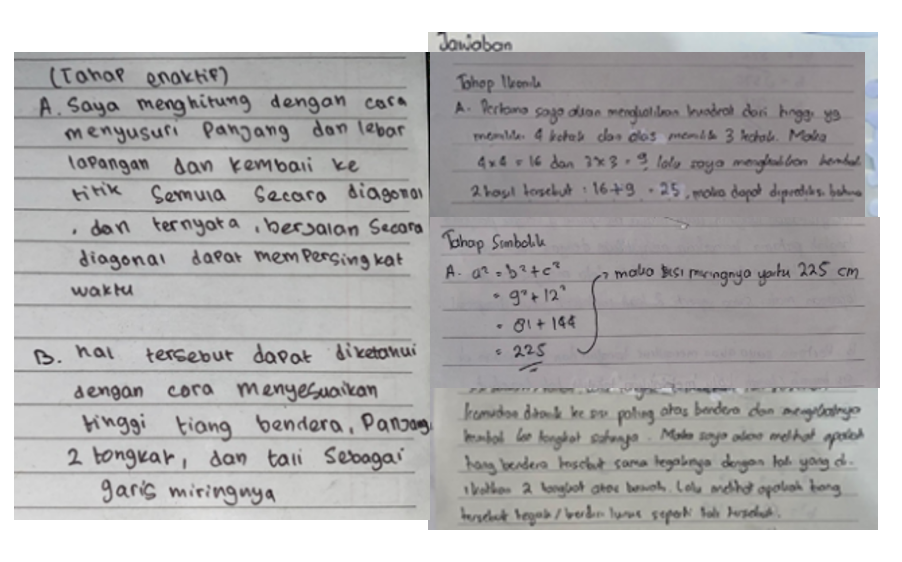 (Tahap enaktif)
A. Saya menghitung dengan cara
menyusuri Panjang dan lebar
lapangan dan kembali ke
titik Semula Secara diagonal
, dan ternyata, berjalan Secara
diagonal dapat memPersingkat
waktu
B. hal tersebut dapat diketahui
dengan cara menyesuaikan
tinggi tiang bendera, Panjang
2 tongkat, dan tali Sebagai
garis miringnya
Jawaban
Tahap Ikonik
A. Pertama saya akan mengkalikan kuadrat dari tinggi yg
memiliki 4 kotak dan alas memiliki 3 kotak. Maka
4x4 = 16 dan 3x3 = 9 lalu saya
2 hasil tersebut : 16+9 = 25, maka dapat diprediksi bahwa
Tahap Simbolik
A. a² = b² + c²
= 9² + 12²
= 81 + 144
= 225
maka sisi miringnya yaitu 225 cm
kemudian ditarik ke sisi paling atas bendera dan
kembali ke tongkat satunya. Maka saya akan melihat apakah
tiang bendera tersebut sama tegaknya dengan tali yang di-
ikatkan 2 tongkat atas bawah. Lalu melihat apakah tiang
tersebut tegak/berdiri lurus seperti tali tersebut.